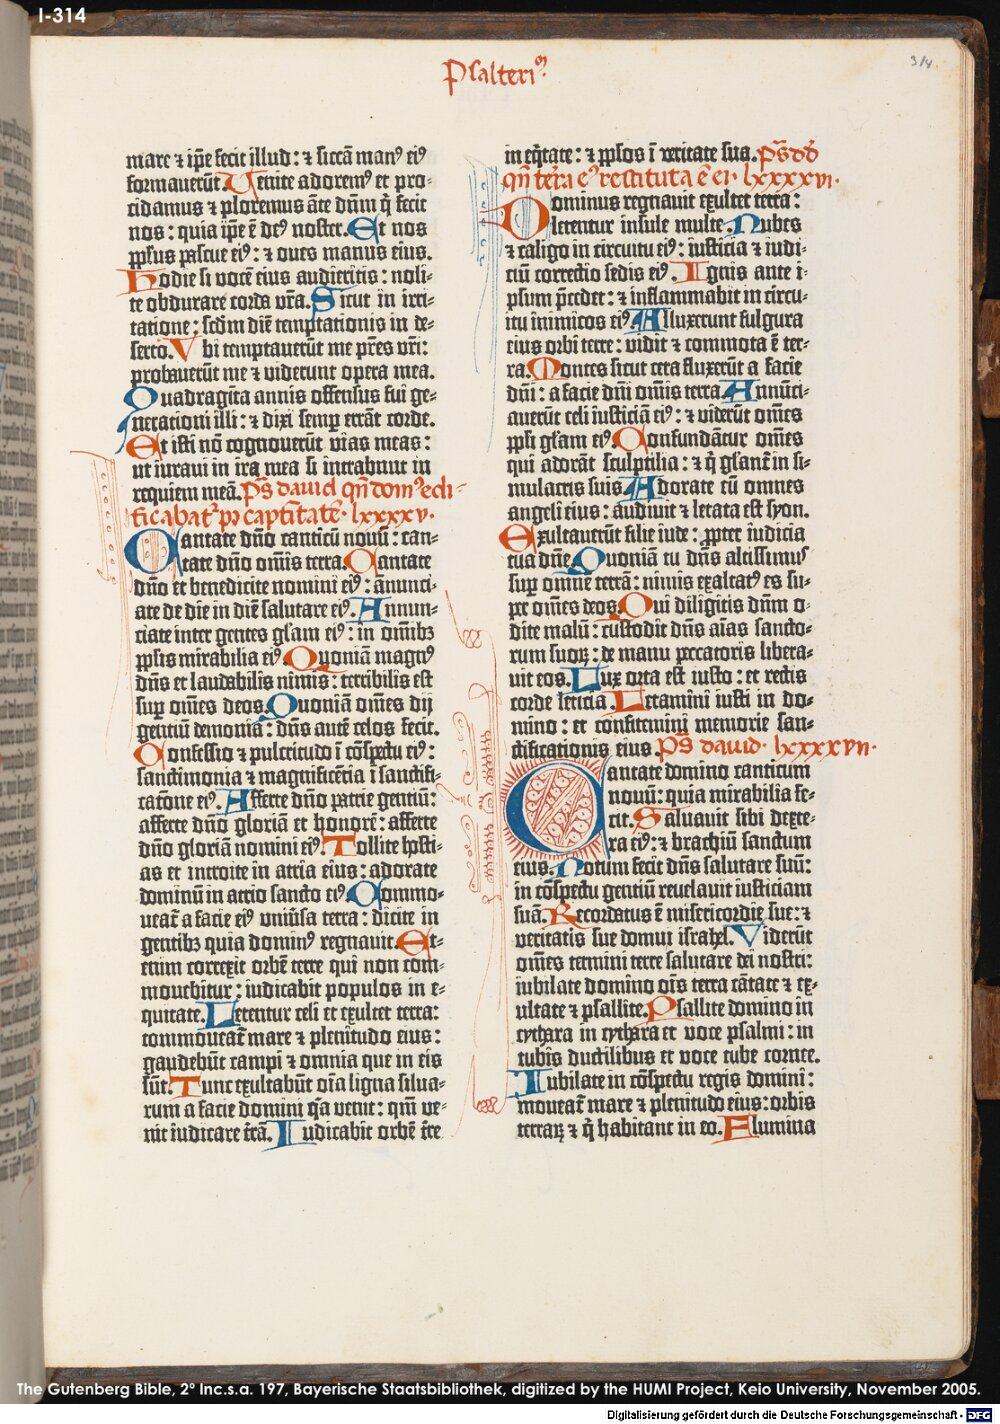 I-314
314.
Psalteriꝰ.
mare ⁊ ip̄e fecit illud : ⁊ siccā manꝰ eiꝰ
formauerūt. Uenite adoremꝰ et pro-
cidamus ⁊ ploremus āte dn̄m q̇ fecit
nos : quia ip̄e ē deꝰ noster. Et nos
pp̄lus pascue eiꝰ : ⁊ oues manus eius.
Hodie si vocē eius audieritis : noli-
te obdurare corda vr̄a. Sicut in irri-
tatione : scd̄m diē temptationis in de-
serto. Ubi temptauerūt me pr̄es vr̄i :
probauerūt me ⁊ viderunt opera mea.
Quadragīta annis offensus fui ge-
nerationi illi : ⁊ dixi semp̱ errāt corde.
Et isti nō cognouerūt vias meas :
ut iuraui in ira mea si intrabunt in
requiem meā. Pš dauid qn̄ domꝰ edi-
ficabat᷑ pꝰ captītatē · lxxxxv ·
Cantate dn̄o canticū nouū : can-
tate dn̄o om̄is terra. Cantate
dn̄o et benedicite nomini eiꝰ : ānunci-
ate de die in diē salutare eiꝰ. Annun-
ciate inter gentes gl'am eiꝰ : in om̄ibꝫ
pp̄lis mirabilia eiꝰ. Quoniā magnꝰ
dn̄s et laudabilis nimis : terribilis est
sup̱ om̄es deos. Quoniā om̄es dij
gentiū demonia : dn̄s autē celos fecit.
Confessio ⁊ pulcritudo ī cōspectu eiꝰ :
sanctimonia ⁊ magnificētia ī sanctifi-
catōne eiꝰ. Afferte dn̄o patrie gentiū :
afferte dn̄o gloriā et honorē : afferte
dn̄o gloriā nomini eiꝰ. Tollite hosti-
as et introite in atria eius : adorate
dominū in atrio sancto eiꝰ. Commo-
ueat᷑ a facie eiꝰ uniūsa terra : dicite in
gentibꝫ quia dominꝰ regnauit. Et-
enim correxit orbē terre qui non com-
mouebitur : iudicabit populos in e-
quitate. Letentur celi et exultet terra :
commoueat᷑ mare ⁊ plenitudo eius :
gaudebūt campi ⁊ omnia que in eis
sūt. Tunc exultabūt oīa ligna silua-
rum a facie domini qͣa venit : qm̄ ve-
nit iudicare t̄rā. Iudicabit orbē t̄re
in eq̇tate : ⁊ pp̄los ī veritate sua. Pš dd̄
qn̄ terra eiꝰ restituta ē ei · lxxxxvi ·
Dominus regnauit exultet terra :
letentur insule multe. Nubes
⁊ caligo in circuitu eiꝰ : iusticia ⁊ iudi-
ciū correctio sedis eiꝰ. Ignis ante i-
psum p̄cedet : ⁊ inflammabit in circu-
itu inimicos eiꝰ. Alluxerunt fulgura
eius orbi terre : vidit ⁊ commota ē ter-
ra. Montes sicut cera fluxerūt a facie
dn̄i : a facie dn̄i om̄is terra. Annūci-
auerūt celi iusticiā eiꝰ : ⁊ viderūt om̄es
pp̄li gl'am eiꝰ. Confundātur om̄es
qui adorāt sculptilia : ⁊ q̇ gl'ant᷑ in si-
mulacris suis. Adorate eū omnes
angeli eius : audiuit ⁊ letata est syon.
Exultauerūt filie iude : ꝓpter iudicia
tua dn̄e. Quoniā tu dn̄s altissimus
sup̱ omnē terrā : nimis exaltatꝰ es su-
per om̄es deos. Qui diligitis dn̄m o-
dite malū : custodit dn̄s aīas sancto-
rum suoꝝ : de manu peccatoris libera-
uit eos. Lux orta est iusto : et rectis
corde leticia. Letamini iusti in do-
mino : et confitemini memorie san-
ctificationis eius. Pš dauid · lxxxxvii ·
Cantate domino canticum
nouū : quia mirabilia fe-
cit. Saluauit sibi dexte-
ra eiꝰ : ⁊ brachiū sanctum
eius. Notum fecit dn̄s salutare suū :
in cōspectu gentiū reuelauit iusticiam
suā. Recordatus ē misericordie sue : ⁊
veritatis sue domui israhel. Viderūt
om̄es termini terre salutare dei nostri :
iubilate domino oīs terra cātate ⁊ ex-
ultate ⁊ psallite. Psallite domino in
cythara in cythara et voce psalmi : in
tubis ductilibus et voce tube cornee.
Iubilate in cōspectu regis domini :
moueat᷑ mare ⁊ plenitudo eius : orbis
terraꝝ ⁊ q̇ habitant in eo. Flumina
The Gutenberg Bible, 2° Inc.s.a. 197, Bayerische Staatsbibliothek, digitized by the HUMI Project, Keio University, November 2005.
Digitalisierung gefördert durch die Deutsche Forschungsgemeinschaft - DFG